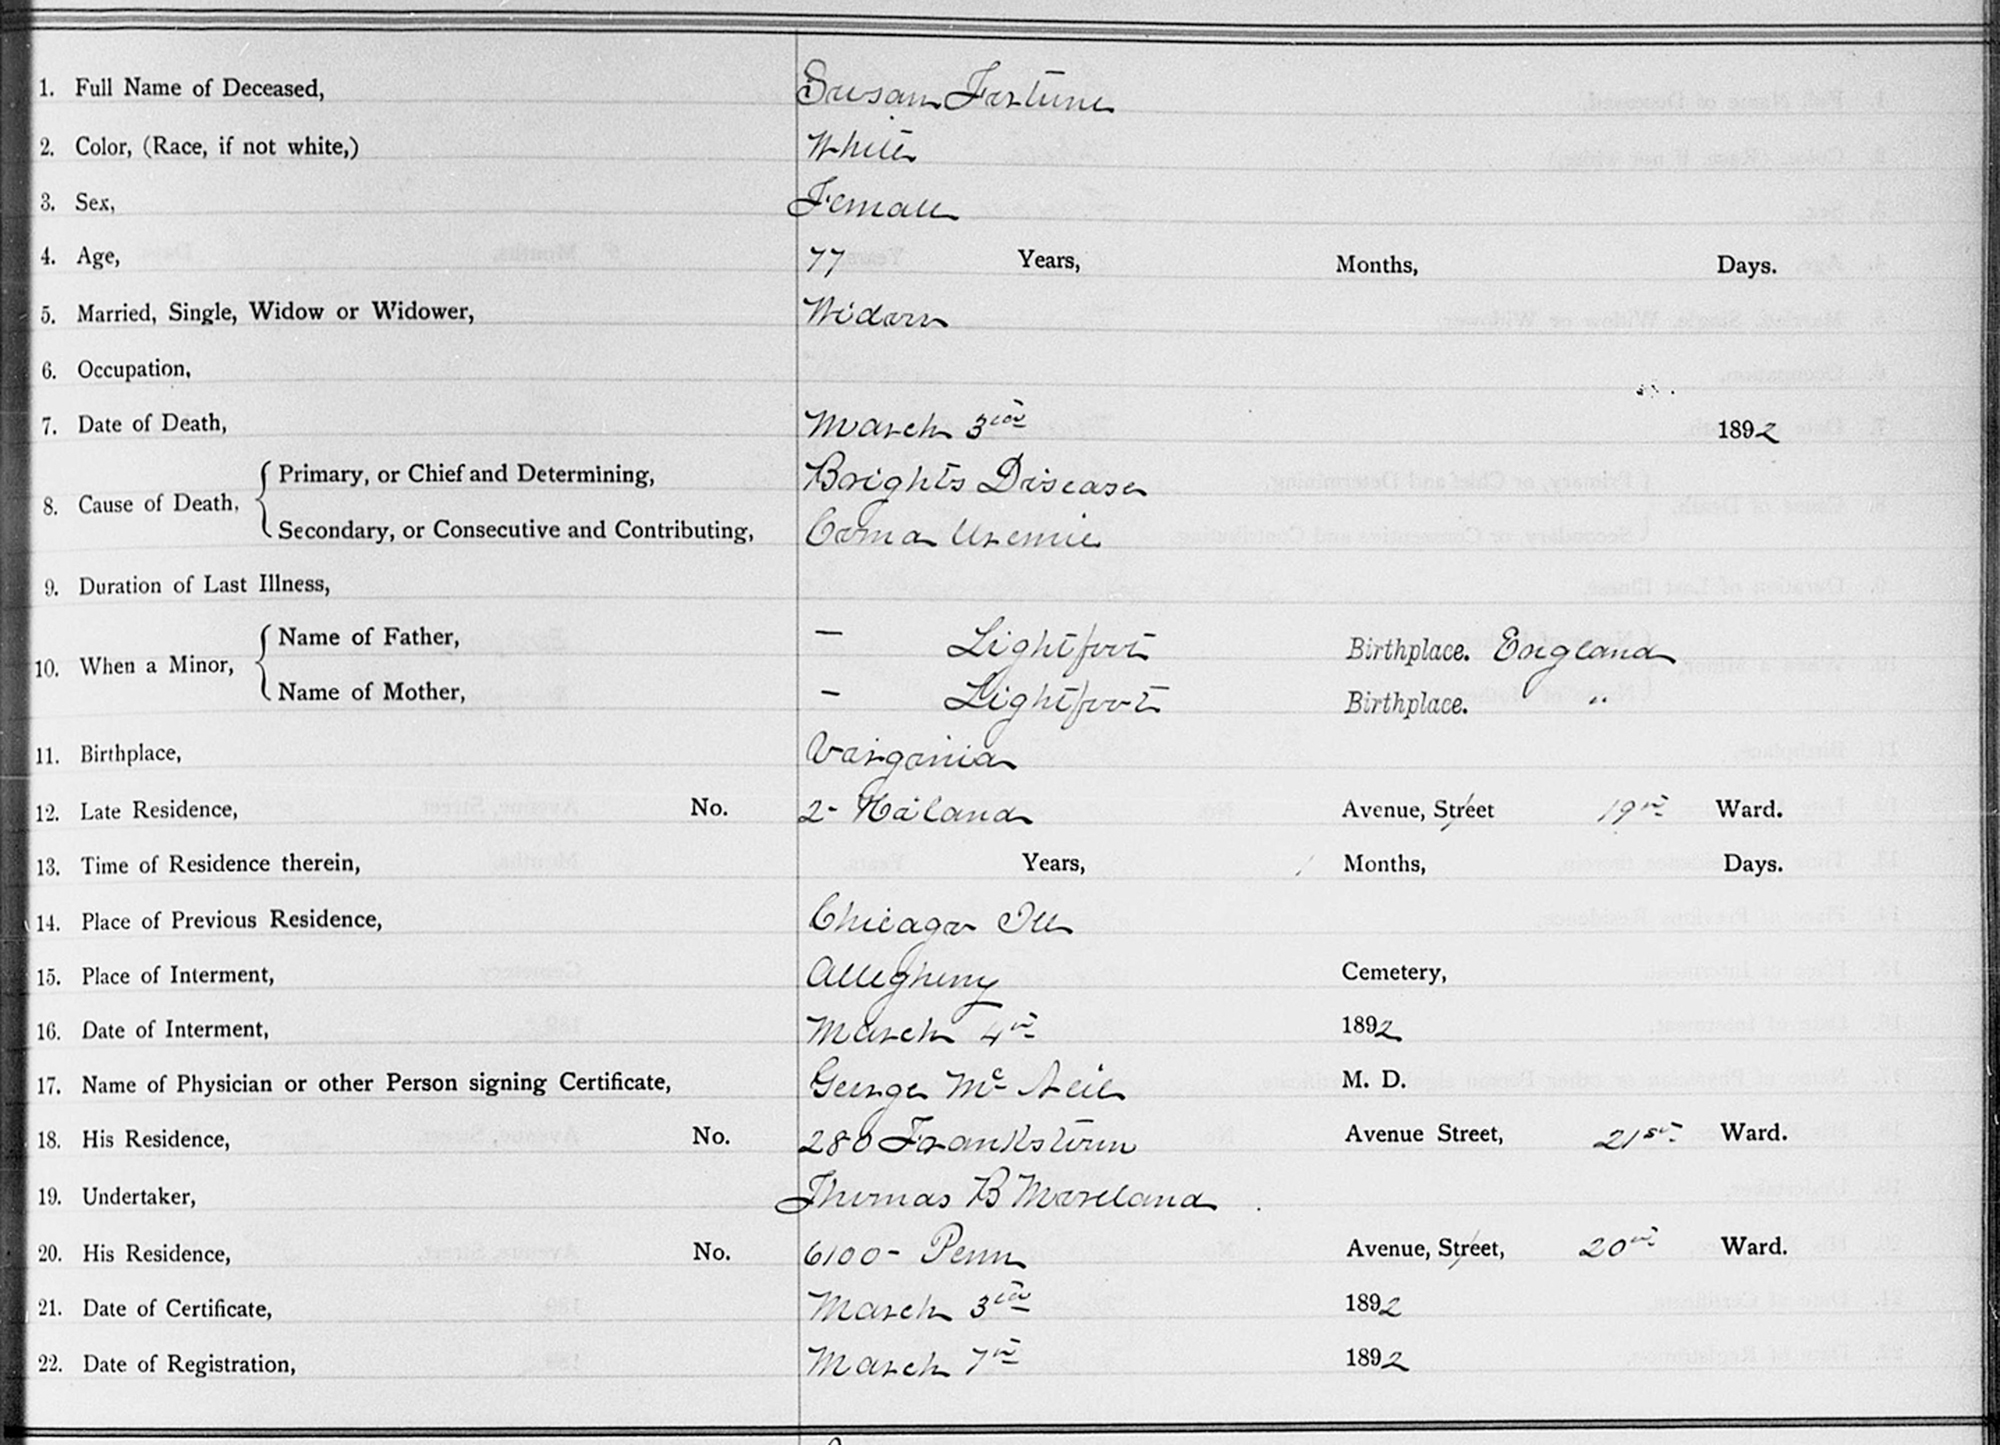 1. Full Name of Deceased, Susan Fortune
2. Color, (Race, if not white,) White
3. Sex, Female
4. Age, 77 Years, Months, Days.
5. Married, Single, Widow or Widower, Widow
6. Occupation,
7. Date of Death, March 3rd 1892
8. Cause of Death, { Primary, or Chief and Determining, Brights Disease
Secondary, or Consecutive and Contributing, Coma Uremic
9. Duration of Last Illness,
10. When a Minor, { Name of Father, — Lightfoot Birthplace. England
Name of Mother, — Lightfoot Birthplace. "
11. Birthplace, Virginia
12. Late Residence, No. 2- Avenue, Street 19th Ward.
13. Time of Residence therein, Years, Months, Days.
14. Place of Previous Residence, Chicago Ill
15. Place of Interment, Allegheny Cemetery,
16. Date of Interment, March 4th 1892
17. Name of Physician or other Person signing Certificate, George McNeil M. D.
18. His Residence, No. 280 Frankstown Avenue Street, 21st Ward.
19. Undertaker, Thomas B Moreland
20. His Residence, No. 6100- Penn Avenue, Street, 20th Ward.
21. Date of Certificate, March 3rd 1892
22. Date of Registration, March 7th 1892